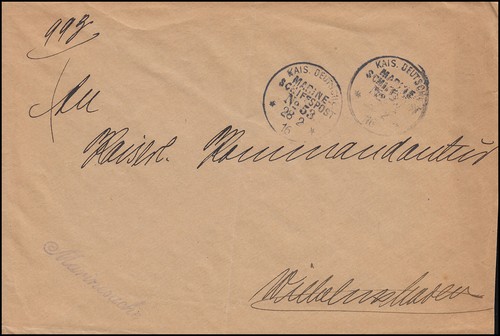 993
KAIS. DEUTSCHE
MARINE-
SCHIFFSPOST
No 53
28 2
16
KAIS. DEUTSCHE
MARINE-
SCHIFFSPOST
An
Kaiserl. Kommandantur
Marinesache
Wilhelmshaven